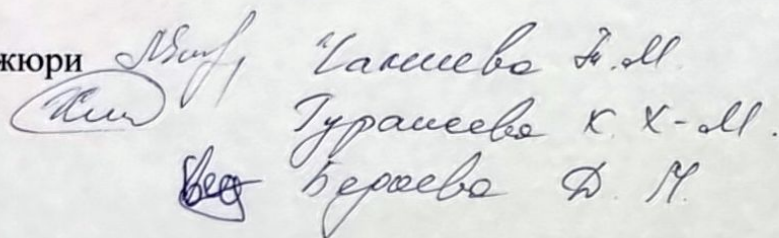 жюри Чакиева Т. М.
Гурашева К. Х-М.
Бероева Д. М.